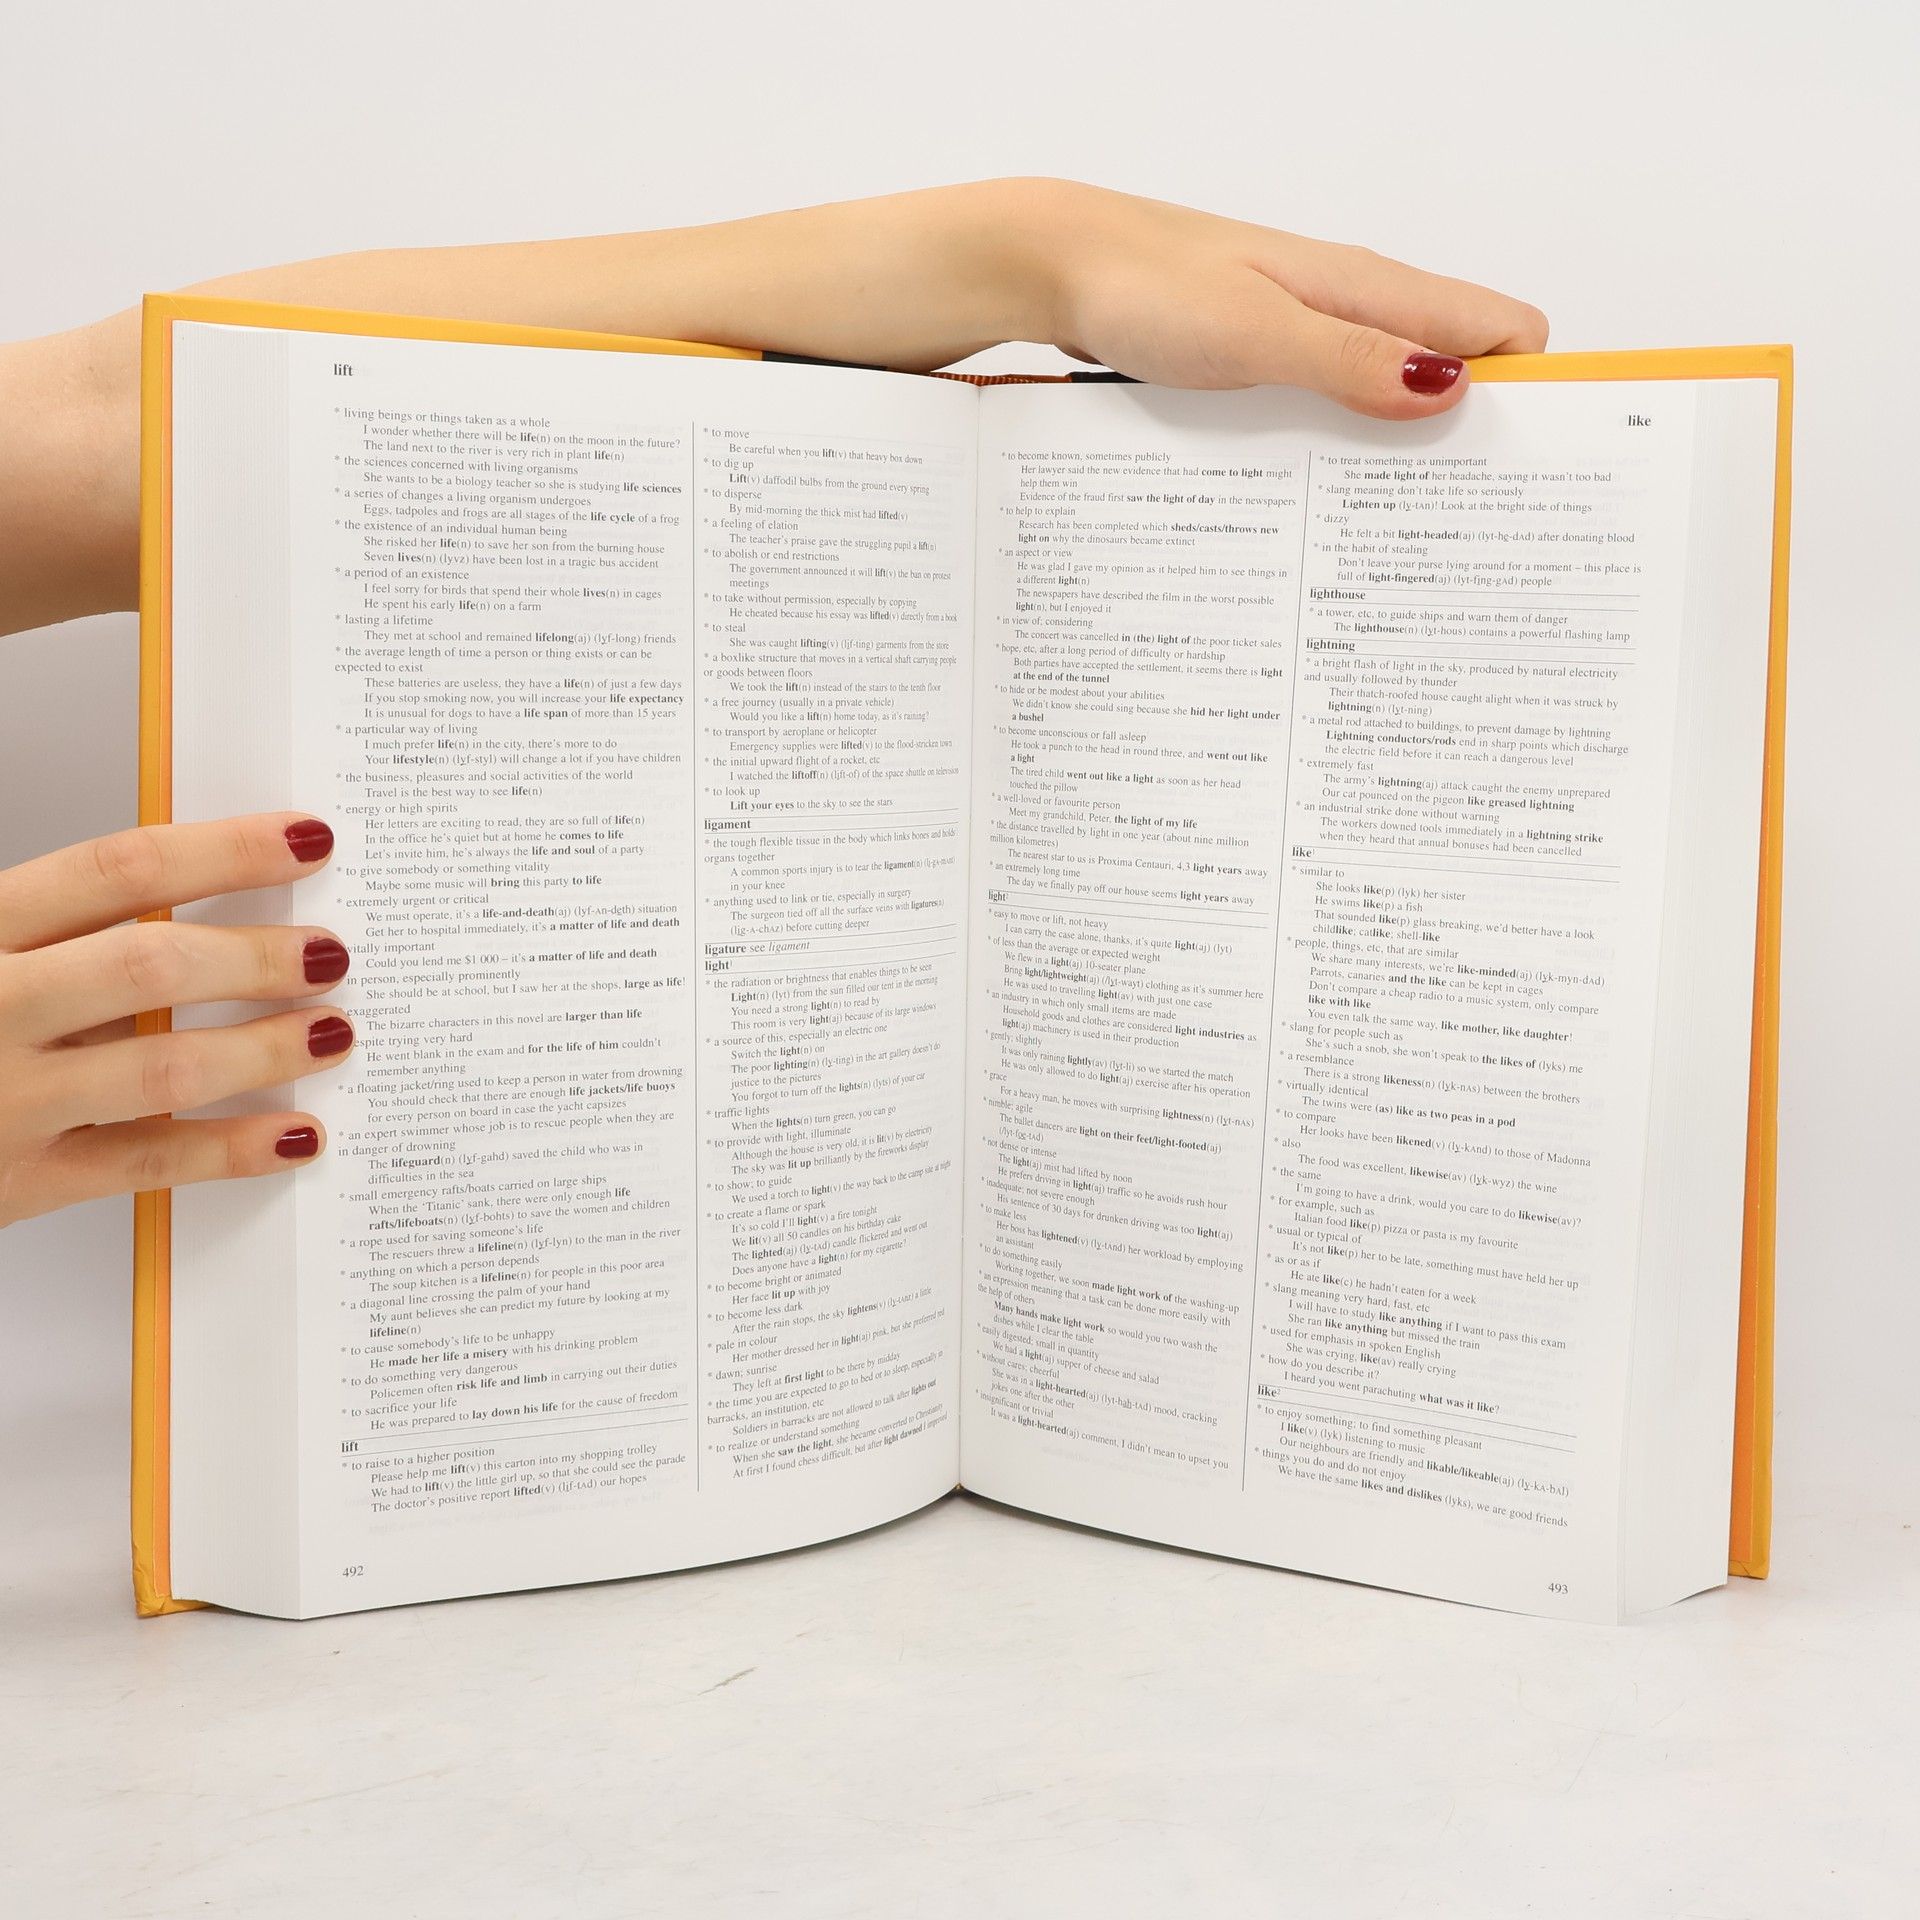 lift
* living beings or things taken as a whole
I wonder whether there will be life(n) on the moon in the future?
The land next to the river is very rich in plant life(n)
* the sciences concerned with living organisms
She wants to be a biology teacher so she is studying life sciences
* a series of changes a living organism undergoes
Eggs, tadpoles and frogs are all stages of the life cycle of a frog
* the existence of an individual human being
She risked her life(n) to save her son from the burning house
Seven lives(n) (lyvz) have been lost in a tragic bus accident
* a period of an existence
I feel sorry for birds that spend their whole lives(n) in cages
He spent his early life(n) on a farm
* lasting a lifetime
They met at school and remained lifelong(aj) (lyf-long) friends
* the average length of time a person or thing exists or can be
expected to exist
These batteries are useless, they have a life(n) of just a few days
If you stop smoking now, you will increase your life expectancy
It is unusual for dogs to have a life span of more than 15 years
* a particular way of living
I much prefer life(n) in the city, there's more to do
Your lifestyle(n) (lyf-styl) will change a lot if you have children
* the business, pleasures and social activities of the world
Travel is the best way to see life(n)
* energy or high spirits
Her letters are exciting to read, they are so full of life(n)
In the office he's quiet but at home he comes to life
Let's invite him, he's always the life and soul of a party
* to give somebody or something vitality
Maybe some music will bring this party to life
* extremely urgent or critical
We must operate, it's a life-and-death(aj) (lyf-An-deth) situation
Get her to hospital immediately, it's a matter of life and death
vitally important
Could you lend me $1 000 – it's a matter of life and death
in person, especially prominently
She should be at school, but I saw her at the shops, large as life!
exaggerated
The bizarre characters in this novel are larger than life
espite trying very hard
He went blank in the exam and for the life of him couldn't
remember anything
* a floating jacket/ring used to keep a person in water from drowning
You should check that there are enough life jackets/life buoys
for every person on board in case the yacht capsizes
* an expert swimmer whose job is to rescue people when they are
in danger of drowning
The lifeguard(n) (lyf-gahd) saved the child who was in
difficulties in the sea
* small emergency rafts/boats carried on large ships
When the 'Titanic' sank, there were only enough life
rafts/lifeboats(n) (lyf-bohts) to save the women and children
* a rope used for saving someone's life
The rescuers threw a lifeline(n) (lyf-lyn) to the man in the river
* anything on which a person depends
The soup kitchen is a lifeline(n) for people in this poor area
* a diagonal line crossing the palm of your hand
My aunt believes she can predict my future by looking at my
lifeline(n)
* to cause somebody's life to be unhappy
He made her life a misery with his drinking problem
* to do something very dangerous
Policemen often risk life and limb in carrying out their duties
* to sacrifice your life
He was prepared to lay down his life for the cause of freedom
lift
* to raise to a higher position
Please help me lift(v) this carton into my shopping trolley
We had to lift(v) the little girl up, so that she could see the parade
The doctor's positive report lifted(v) (lif-tAd) our hopes
492
* to move
Be careful when you lift(v) that heavy box down
* to dig up
Lift(v) daffodil bulbs from the ground every spring
* to disperse
By mid-morning the thick mist had lifted(v)
* a feeling of elation
The teacher's praise gave the struggling pupil a lift(n)
* to abolish or end restrictions
The government announced it will lift(v) the ban on protest
meetings
* to take without permission, especially by copying
He cheated because his essay was lifted(v) directly from a book
* to steal
She was caught lifting(v) (lif-ting) garments from the store
* a boxlike structure that moves in a vertical shaft carrying people
or goods between floors
We took the lift(n) instead of the stairs to the tenth floor
* a free journey (usually in a private vehicle)
Would you like a lift(n) home today, as it's raining?
* to transport by aeroplane or helicopter
Emergency supplies were lifted(v) to the flood-stricken town
* the initial upward flight of a rocket, etc
I watched the liftoff(n) (lift-of) of the space shuttle on television
* to look up
Lift your eyes to the sky to see the stars
ligament
* the tough flexible tissue in the body which links bones and holds
organs together
A common sports injury is to tear the ligament(n) (li-gA-mAnt)
in your knee
* anything used to link or tie, especially in surgery
The surgeon tied off all the surface veins with ligatures(n)
(lig-A-chAz) before cutting deeper
ligature see ligament
light¹
* the radiation or brightness that enables things to be seen
Light(n) (lyt) from the sun filled our tent in the morning
You need a strong light(n) to read by
This room is very light(aj) because of its large windows
* a source of this, especially an electric one
Switch the light(n) on
The poor lighting(n) (ly-ting) in the art gallery doesn't do
justice to the pictures
You forgot to turn off the lights(n) (lyts) of your car
* traffic lights
When the lights(n) turn green, you can go
* to provide with light, illuminate
Although the house is very old, it is lit(v) by electricity
The sky was lit up brilliantly by the fireworks display
* to show; to guide
We used a torch to light(v) the way back to the camp site at night
* to create a flame or spark
It's so cold I'll light(v) a fire tonight
We lit(v) all 50 candles on his birthday cake
The lighted(aj) (ly-tAd) candle flickered and went out
Does anyone have a light(n) for my cigarette?
* to become bright or animated
Her face lit up with joy
* to become less dark
After the rain stops, the sky lightens(v) (ly-tAnz) a little
* pale in colour
Her mother dressed her in light(aj) pink, but she preferred red
* dawn; sunrise
They left at first light to be there by midday
* the time you are expected to go to bed or to sleep, especially in
barracks, an institution, etc
Soldiers in barracks are not allowed to talk after lights out
* to realize or understand something
When she saw the light, she became converted to Christianity
At first I found chess difficult, but after light dawned I improved
like
* to become known, sometimes publicly
Her lawyer said the new evidence that had come to light might
help them win
Evidence of the fraud first saw the light of day in the newspapers
* to help to explain
Research has been completed which sheds/casts/throws new
light on why the dinosaurs became extinct
* an aspect or view
He was glad I gave my opinion as it helped him to see things in
a different light(n)
The newspapers have described the film in the worst possible
light(n), but I enjoyed it
* in view of; considering
The concert was cancelled in (the) light of the poor ticket sales
* hope, etc, after a long period of difficulty or hardship
Both parties have accepted the settlement, it seems there is light
at the end of the tunnel
* to hide or be modest about your abilities
We didn't know she could sing because she hid her light under
a bushel
* to become unconscious or fall asleep
He took a punch to the head in round three, and went out like
a light
The tired child went out like a light as soon as her head
touched the pillow
* a well-loved or favourite person
Meet my grandchild, Peter, the light of my life
* the distance travelled by light in one year (about nine million
million kilometres)
The nearest star to us is Proxima Centauri, 4,3 light years away
* an extremely long time
The day we finally pay off our house seems light years away
light²
* easy to move or lift, not heavy
I can carry the case alone, thanks, it's quite light(aj) (lyt)
* of less than the average or expected weight
We flew in a light(aj) 10-seater plane
Bring light/lightweight(aj) (/lyt-wayt) clothing as it's summer here
He was used to travelling light(av) with just one case
* an industry in which only small items are made
Household goods and clothes are considered light industries as
light(aj) machinery is used in their production
* gently; slightly
It was only raining lightly(av) (lyt-li) so we started the match
He was only allowed to do light(aj) exercise after his operation
* grace
For a heavy man, he moves with surprising lightness(n) (lyt-nAs)
* nimble; agile
The ballet dancers are light on their feet/light-footed(aj)
(/lyt-fog-tAd)
* not dense or intense
The light(aj) mist had lifted by noon
He prefers driving in light(aj) traffic so he avoids rush hour
* inadequate; not severe enough
His sentence of 30 days for drunken driving was too light(aj)
* to make less
Her boss has lightened(v) (ly-tAnd) her workload by employing
an assistant
* to do something easily
Working together, we soon made light work of the washing-up
* an expression meaning that a task can be done more easily with
the help of others
Many hands make light work so would you two wash the
dishes while I clear the table
* easily digested; small in quantity
We had a light(aj) supper of cheese and salad
* without cares; cheerful
She was in a light-hearted(aj) (lyt-hah-tAd) mood, cracking
jokes one after the other
* insignificant or trivial
It was a light-hearted(aj) comment, I didn't mean to upset you
* to treat something as unimportant
She made light of her headache, saying it wasn't too bad
* slang meaning don't take life so seriously
Lighten up (ly-tAn)! Look at the bright side of things
* dizzy
He felt a bit light-headed(aj) (lyt-he-dAd) after donating blood
* in the habit of stealing
Don't leave your purse lying around for a moment – this place is
full of light-fingered(aj) (lyt-fing-gAd) people
lighthouse
* a tower, etc, to guide ships and warn them of danger
The lighthouse(n) (lyt-hous) contains a powerful flashing lamp
lightning
* a bright flash of light in the sky, produced by natural electricity
and usually followed by thunder
Their thatch-roofed house caught alight when it was struck by
lightning(n) (lyt-ning)
* a metal rod attached to buildings, to prevent damage by lightning
Lightning conductors/rods end in sharp points which discharge
the electric field before it can reach a dangerous level
* extremely fast
The army's lightning(aj) attack caught the enemy unprepared
Our cat pounced on the pigeon like greased lightning
* an industrial strike done without warning
The workers downed tools immediately in a lightning strike
when they heard that annual bonuses had been cancelled
like¹
* similar to
She looks like(p) (lyk) her sister
He swims like(p) a fish
That sounded like(p) glass breaking, we'd better have a look
childlike; catlike; shell-like
* people, things, etc, that are similar
We share many interests, we're like-minded(aj) (lyk-myn-dAd)
Parrots, canaries and the like can be kept in cages
Don't compare a cheap radio to a music system, only compare
like with like
You even talk the same way, like mother, like daughter!
* slang for people such as
She's such a snob, she won't speak to the likes of (lyks) me
* a resemblance
There is a strong likeness(n) (lyk-nAs) between the brothers
* virtually identical
The twins were (as) like as two peas in a pod
* to compare
Her looks have been likened(v) (ly-kAnd) to those of Madonna
* also
The food was excellent, likewise(av) (lyk-wyz) the wine
* the same
I'm going to have a drink, would you care to do likewise(av)?
* for example, such as
Italian food like(p) pizza or pasta is my favourite
* usual or typical of
It's not like(p) her to be late, something must have held her up
* as or as if
He ate like(c) he hadn't eaten for a week
* slang meaning very hard, fast, etc
I will have to study like anything if I want to pass this exam
She ran like anything but missed the train
* used for emphasis in spoken English
She was crying, like(av) really crying
* how do you describe it?
I heard you went parachuting what was it like?
like²
* to enjoy something; to find something pleasant
I like(v) (lyk) listening to music
Our neighbours are friendly and likable/likeable(aj) (ly-kA-bAl)
* things you do and do not enjoy
We have the same likes and dislikes (lyks), we are good friends
493